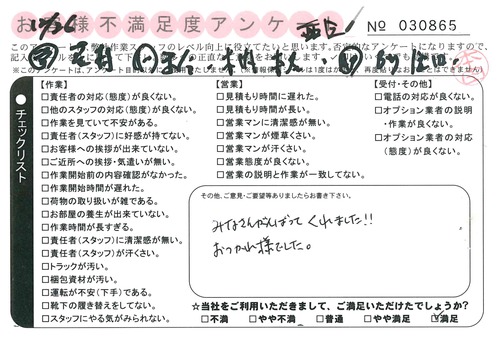 お客様不満足度アンケート
No 030865
【作業】
□責任者の対応(態度)が良くない。
□他のスタッフの対応(態度)が良くない。
□作業を見ていて不安がある。
□責任者(スタッフ)に好感が持てない。
□お客様への挨拶が出来ていない。
□ご近所への挨拶・気遣いが無い。
□作業開始前の内容確認がなかった。
□作業開始時間が遅れた。
□荷物の取り扱いが雑である。
□お部屋の養生が出来ていない。
□作業時間が長すぎる。
□責任者(スタッフ)に清潔感が無い。
□責任者(スタッフ)が汗くさい。
□トラックが汚い。
□梱包資材が汚い。
□運転が不安(下手)である。
□靴下の履き替えをしてない。
□スタッフにやる気がみられない。
【営業】
□見積もり時間に遅れた。
□見積もり時間が長い。
□営業マンに清潔感が無い。
□営業マンが煙草くさい。
□営業マンが汗くさい。
□営業態度が良くない。
□営業の説明と作業が一致してない。
【受付・その他】
□電話の対応が良くない。
□オプション業者の説明
・作業が良くない。
□オプション業者の対応
(態度)が良くない。
チェックリスト
その他、ご意見・ご要望等ありましたらお書き下さい。
みなさんがんばってくれました!!
おつかれ様でした。
☆当社をご利用いただきまして、ご満足いただけたでしょうか?
□不満 □やや不満 □普通 □やや満足 □満足